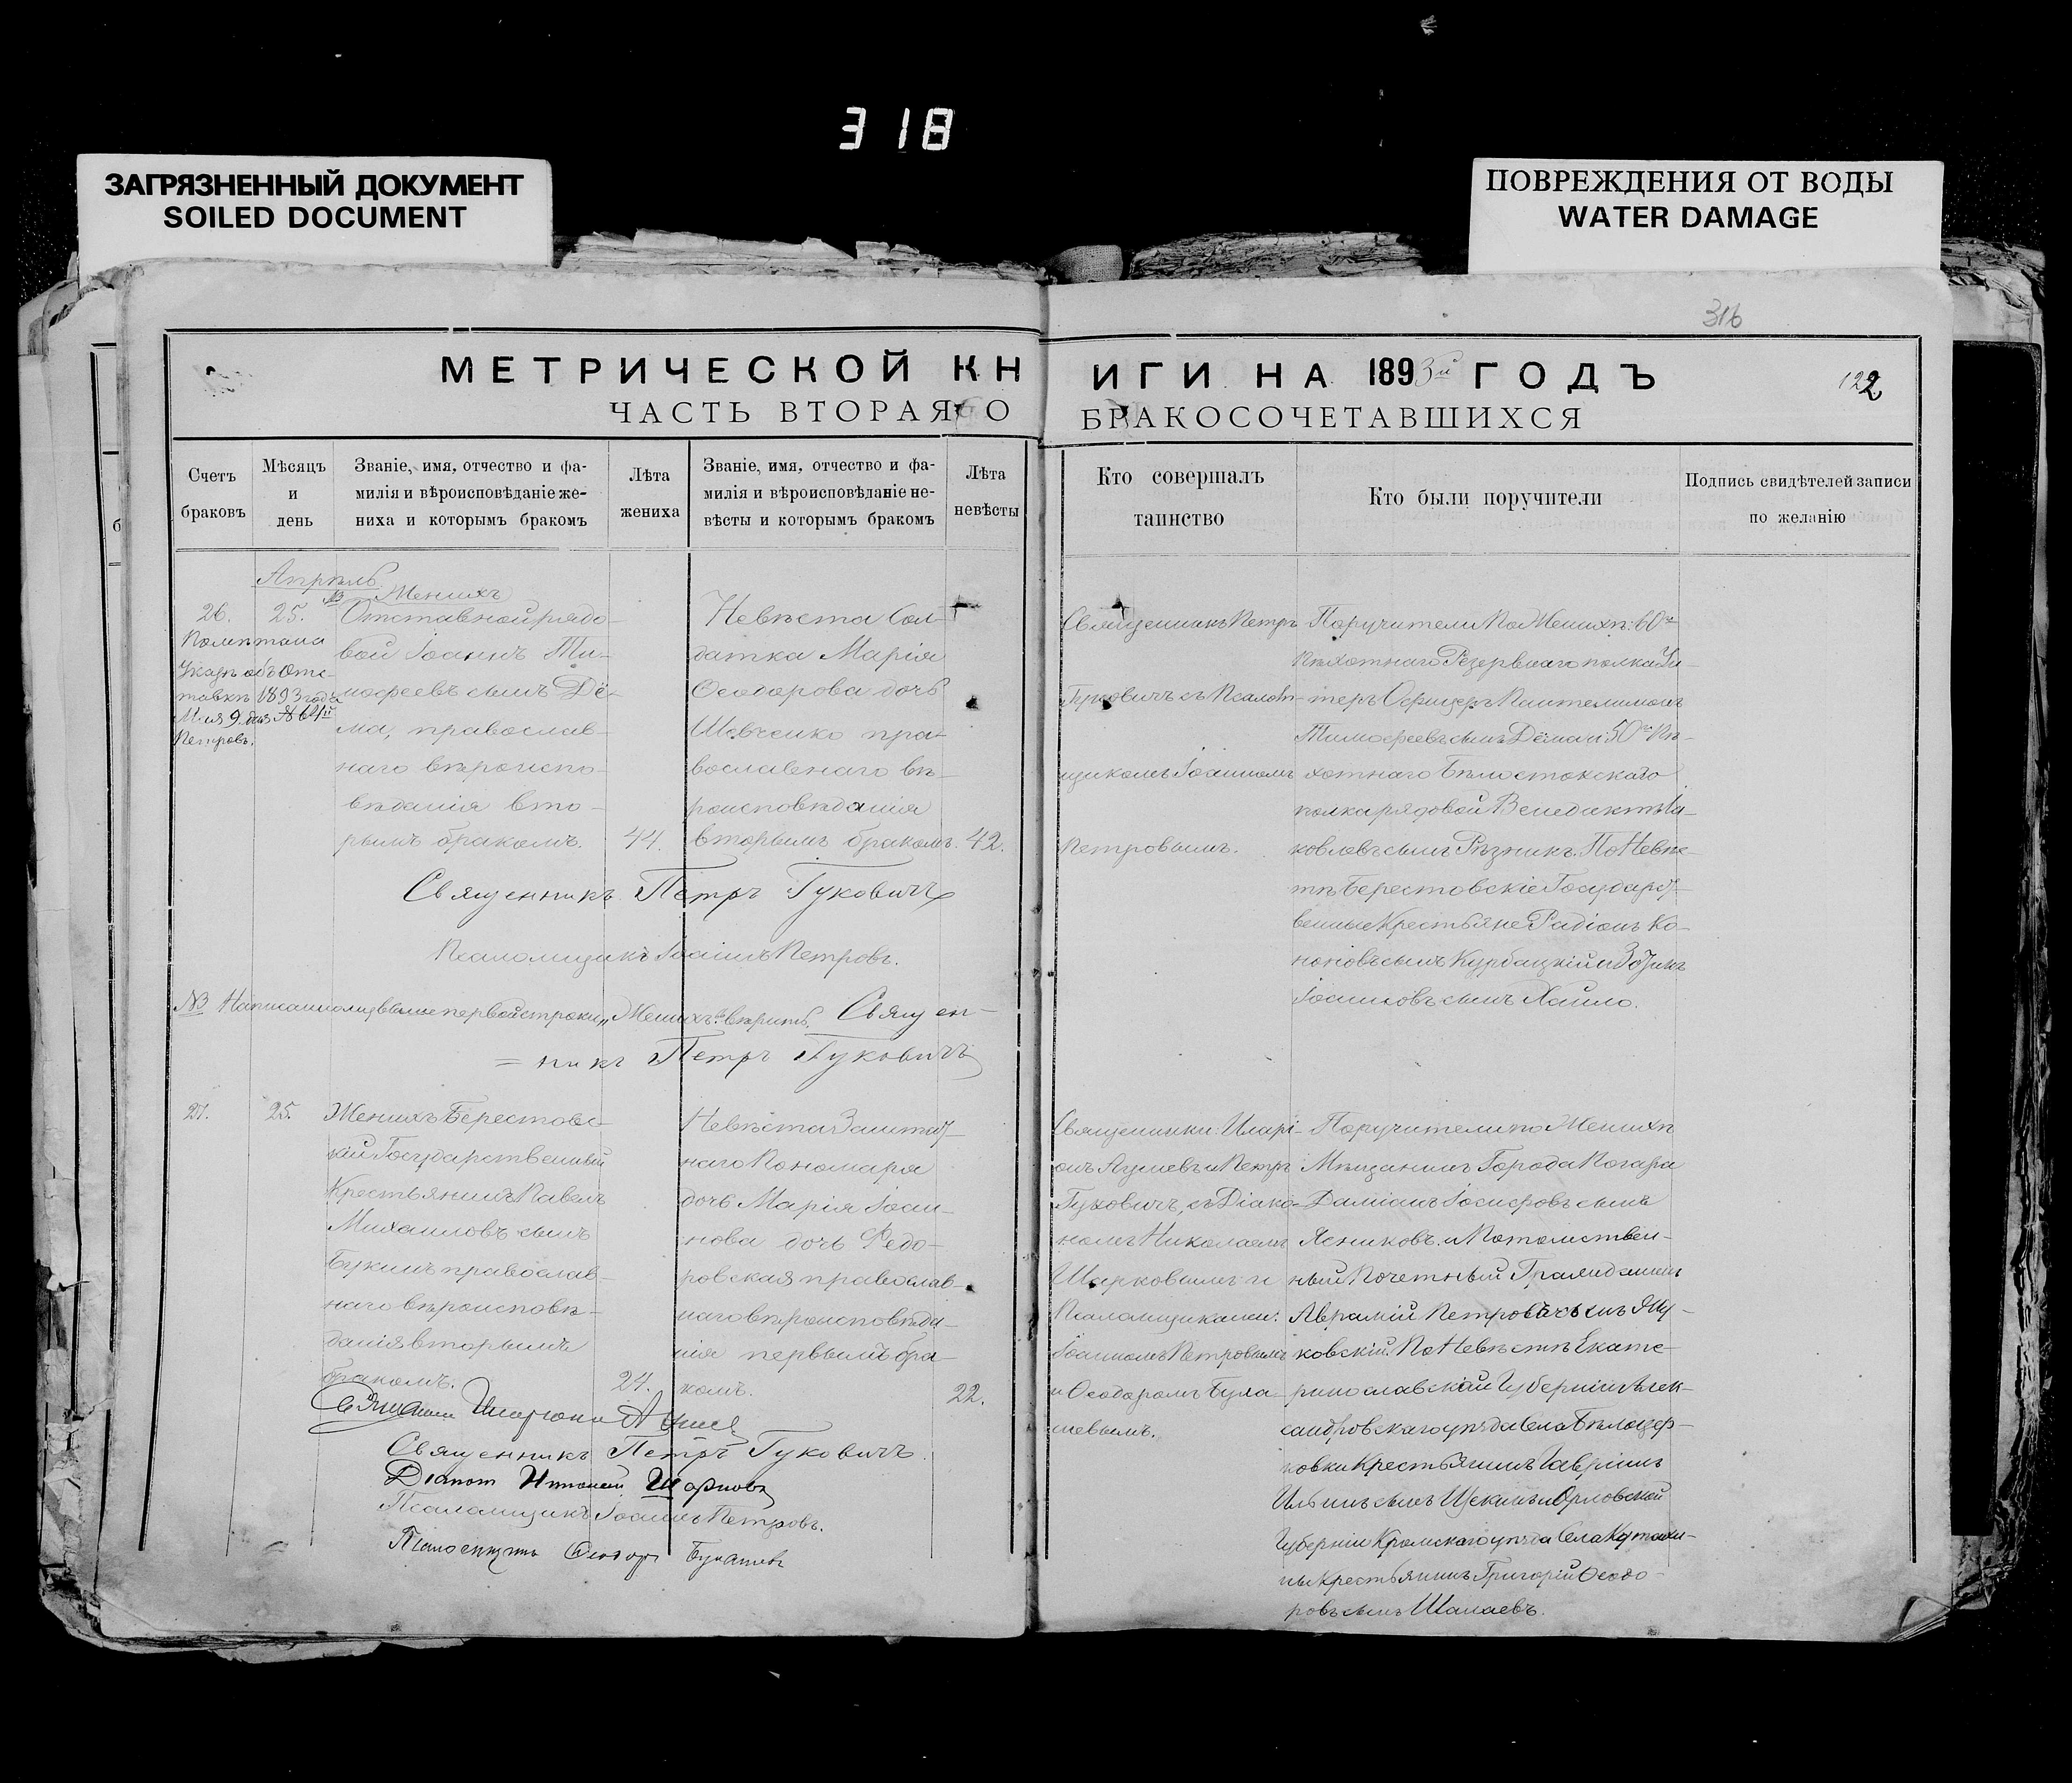 318
ЗАГРЯЗНЕННЫЙ ДОКУМЕНТ
SOILED DOCUMENT
ПОВРЕЖДЕНИЯ ОТ ВОДЫ
WATER DAMAGE
316
МЕТРИЧЕСКОЙ КН
ИГИ НА 1893й ГОДЪ
122
ЧАСТЬ ВТОРАЯ О
БРАКОСОЧЕТАВШИХСЯ
Счетъ
браковъ
Мѣсяцъ
и
день
Званіе, имя, отчество и фа-
милія и вѣроисповѣданіе же-
ниха и которымъ бракомъ
Лѣта
жениха
Званіе, имя, отчество и фа-
милія и вѣроисповѣданіе не-
вѣсты и которымъ бракомъ
Лѣта
невѣсты
Кто совершалъ
таинство
Кто были поручители
Подпись свидѣтелей записи
по желанію
Апрѣль
26.
25.
Помѣтана
Указъ объ Отс-
тавкѣ 1893 года
Петровъ.
NB Женихъ
Отставной рядо-
вой Іоаннъ Ти-
мофеевъ сынъ Дё-
ма, православ-
наго вѣроиспо-
вѣданія вто-
рымъ бракомъ.
44.
Невѣста Сол-
датка Марія
Ѳеодорова дочь
Шевченко пра-
вославнаго вѣ-
роисповѣданія
вторымъ бракомъ.
42.
Священникъ Петръ
Гуковичъ съ Псалом-
щикомъ Іоанномъ
Петровымъ.
Поручители По Женихѣ: 60го
пѣхотнаго Резервнаго полка Ун-
теръ Офицеръ Пантелимонъ
Тимофеевъ сынъ Дёма и 50го Пѣ-
хотнаго Бѣлостокскаго
полка рядовой Венедиктъ Іа-
ковлевъ сынъ Рѣзникъ. По Невѣс-
тѣ Берестовскіе Государст-
венные Крестьяне Радіонъ Ко-
ноновъ сынъ Курбацкій и
Іоанновъ сынъ Хайло.
Священникъ Петръ Гуковичъ
Псаломщикъ Іоаннъ Петровъ.
NB Написанному выше первой строки „Женихъ" вѣрить. Священ-
= никъ Петръ Гуковичъ
27.
25.
Женихъ Берестовс-
кій Государственный
Крестьянинъ Павелъ
Михаиловъ сынъ
Букинъ православ-
наго вѣроисповѣ-
данія вторымъ
бракомъ.
24.
Невѣста Заштат-
наго Пономаря
дочь Марія Іоан-
нова дочь Федо-
ровская православ-
наго вѣроисповѣда-
нія первымъ бра-
комъ.
22.
Священники: Иларі-
онъ и Петръ
Гуковичъ, съ Діако-
номъ Николаемъ
Шарковымъ и
Псаломщиками:
Іоанномъ Петровымъ
и Ѳеодоромъ Була-
шевымъ.
Поручители по Женихѣ
Мѣщанинъ Города Погара
Даміанъ Іосифовъ сынъ
Ясниковъ. и Потомствен-
ный Почетный Гражданинъ
Аврамій Петровъ сынъ Яну-
ковскій. По Невѣстѣ Екате-
ринославской Губерніи Алек-
сандровскаго уѣзда Села Бѣлоцер-
ковки Крестьянинъ Гавріилъ
Ильинъ сынъ Щекинъ и Орловской
Губерніи Кромскаго уѣзда Села
Крестьянинъ Григорій Ѳеодо-
ровъ сынъ Шалаевъ.
Священникъ Иларіонъ
Священникъ Петръ Гуковичъ.
Діаконъ Николай Шарковъ
Псаломщикъ Іоаннъ Петровъ.
Псаломщикъ Ѳеодоръ Булашевъ